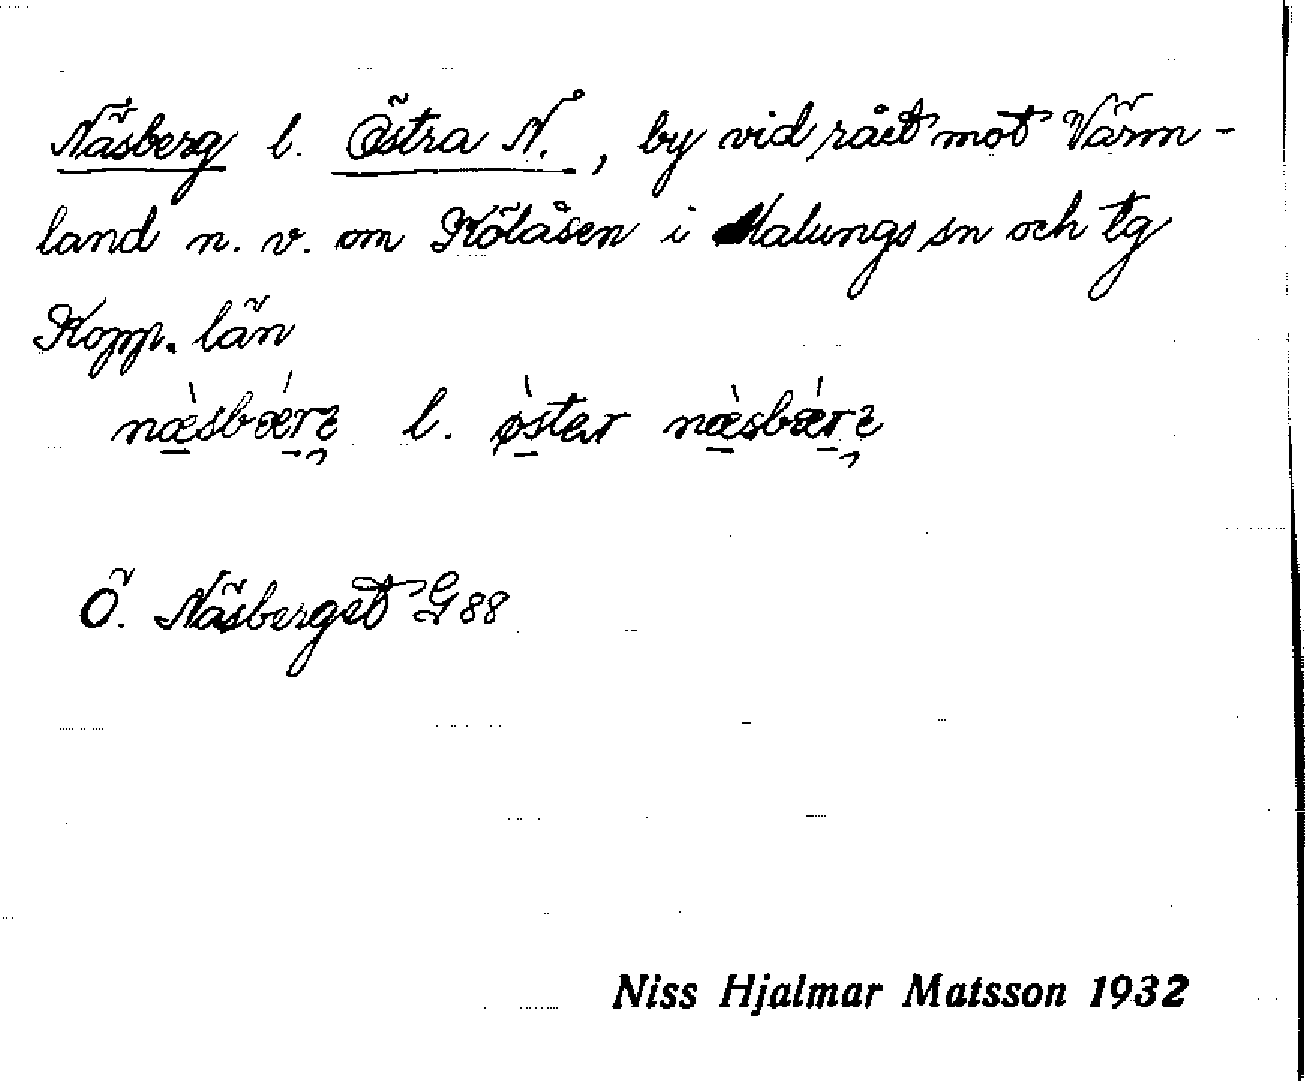 Näsberg l. Östra N., by vid rået mot Värm-
land n. v. om Kölåsen i Malungs sn och tg
Kopp. län
næ̀sbǽrɛ l. ø̀stɑr næ̀sbǽrɛ
Ö. Näsberget G88
Niss Hjalmar Matsson 1932